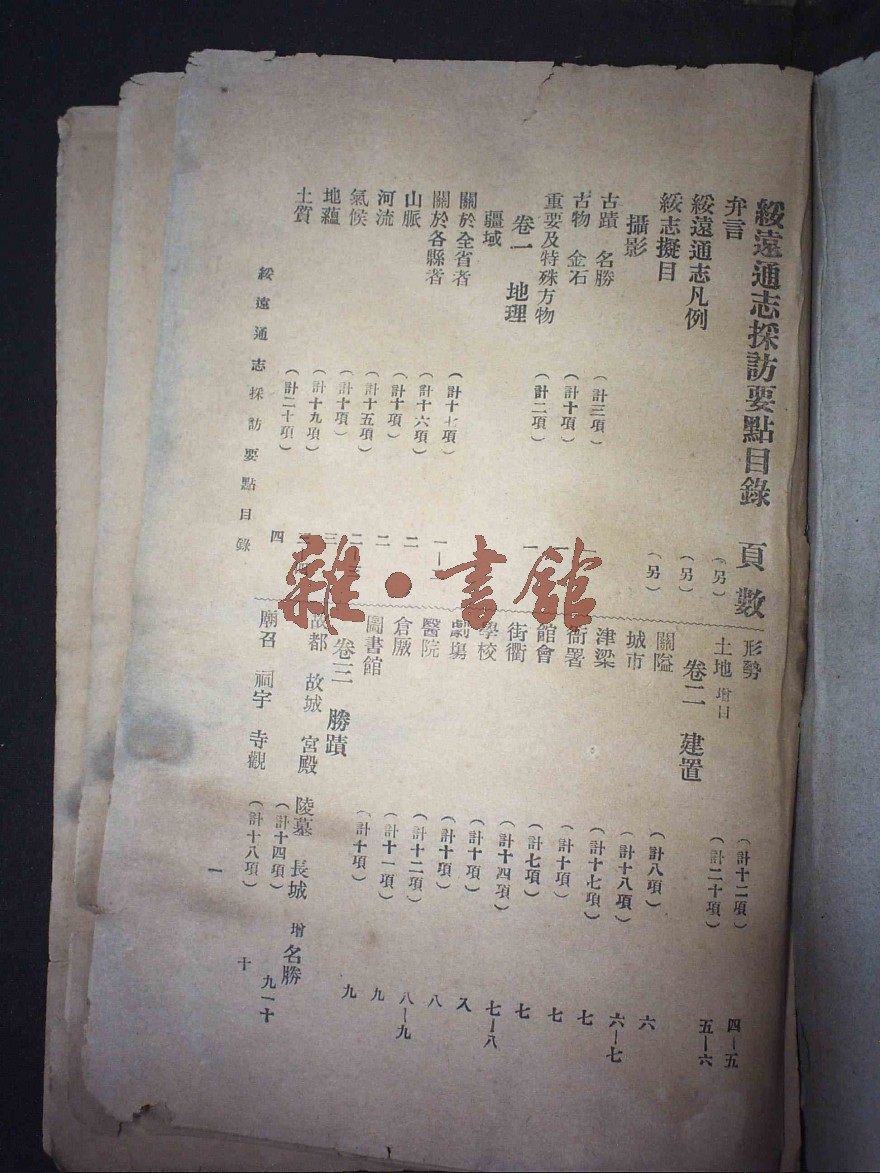 綏遠通志採訪要點目錄 頁數
弁言 (另)
綏遠通志凡例 (另)
綏志擬目 (另)
攝影
古蹟 名勝 (計三項)
古物 金石 (計十項) 一
重要及特殊方物 (計二項) 一
卷一 地理
疆域
關於全省者 (計十七項) 一—
關於各縣者 (計十六項) 二
山脈 (計十項) 二
河流 (計十五項) 二—三
氣候 (計十項) 三
地蘊 (計十九項)
土質 (計二十項) 四
形勢 (計十二項) 四—五
土地 增 (計二十項) 五—六
卷二 建置
關隘 (計八項) 六
城市 (計十八項) 六—七
津梁 (計十七項) 七
衙署 (計十項) 七
館會 (計七項) 七
街衢 (計十四項) 七—八
學校 (計十項) 入
劇塲 (計十項) 八
醫院 (計十二項) 八—九
倉廒 (計十一項) 九
圖書館 (計十項) 九
卷三 勝蹟
故都 故城 宮殿 陵墓 長城 增 名勝 (計十四項) 九—十
廟召 祠宇 寺觀 (計十八項) 十
綏遠通志採訪要點目錄 一
雜·書館